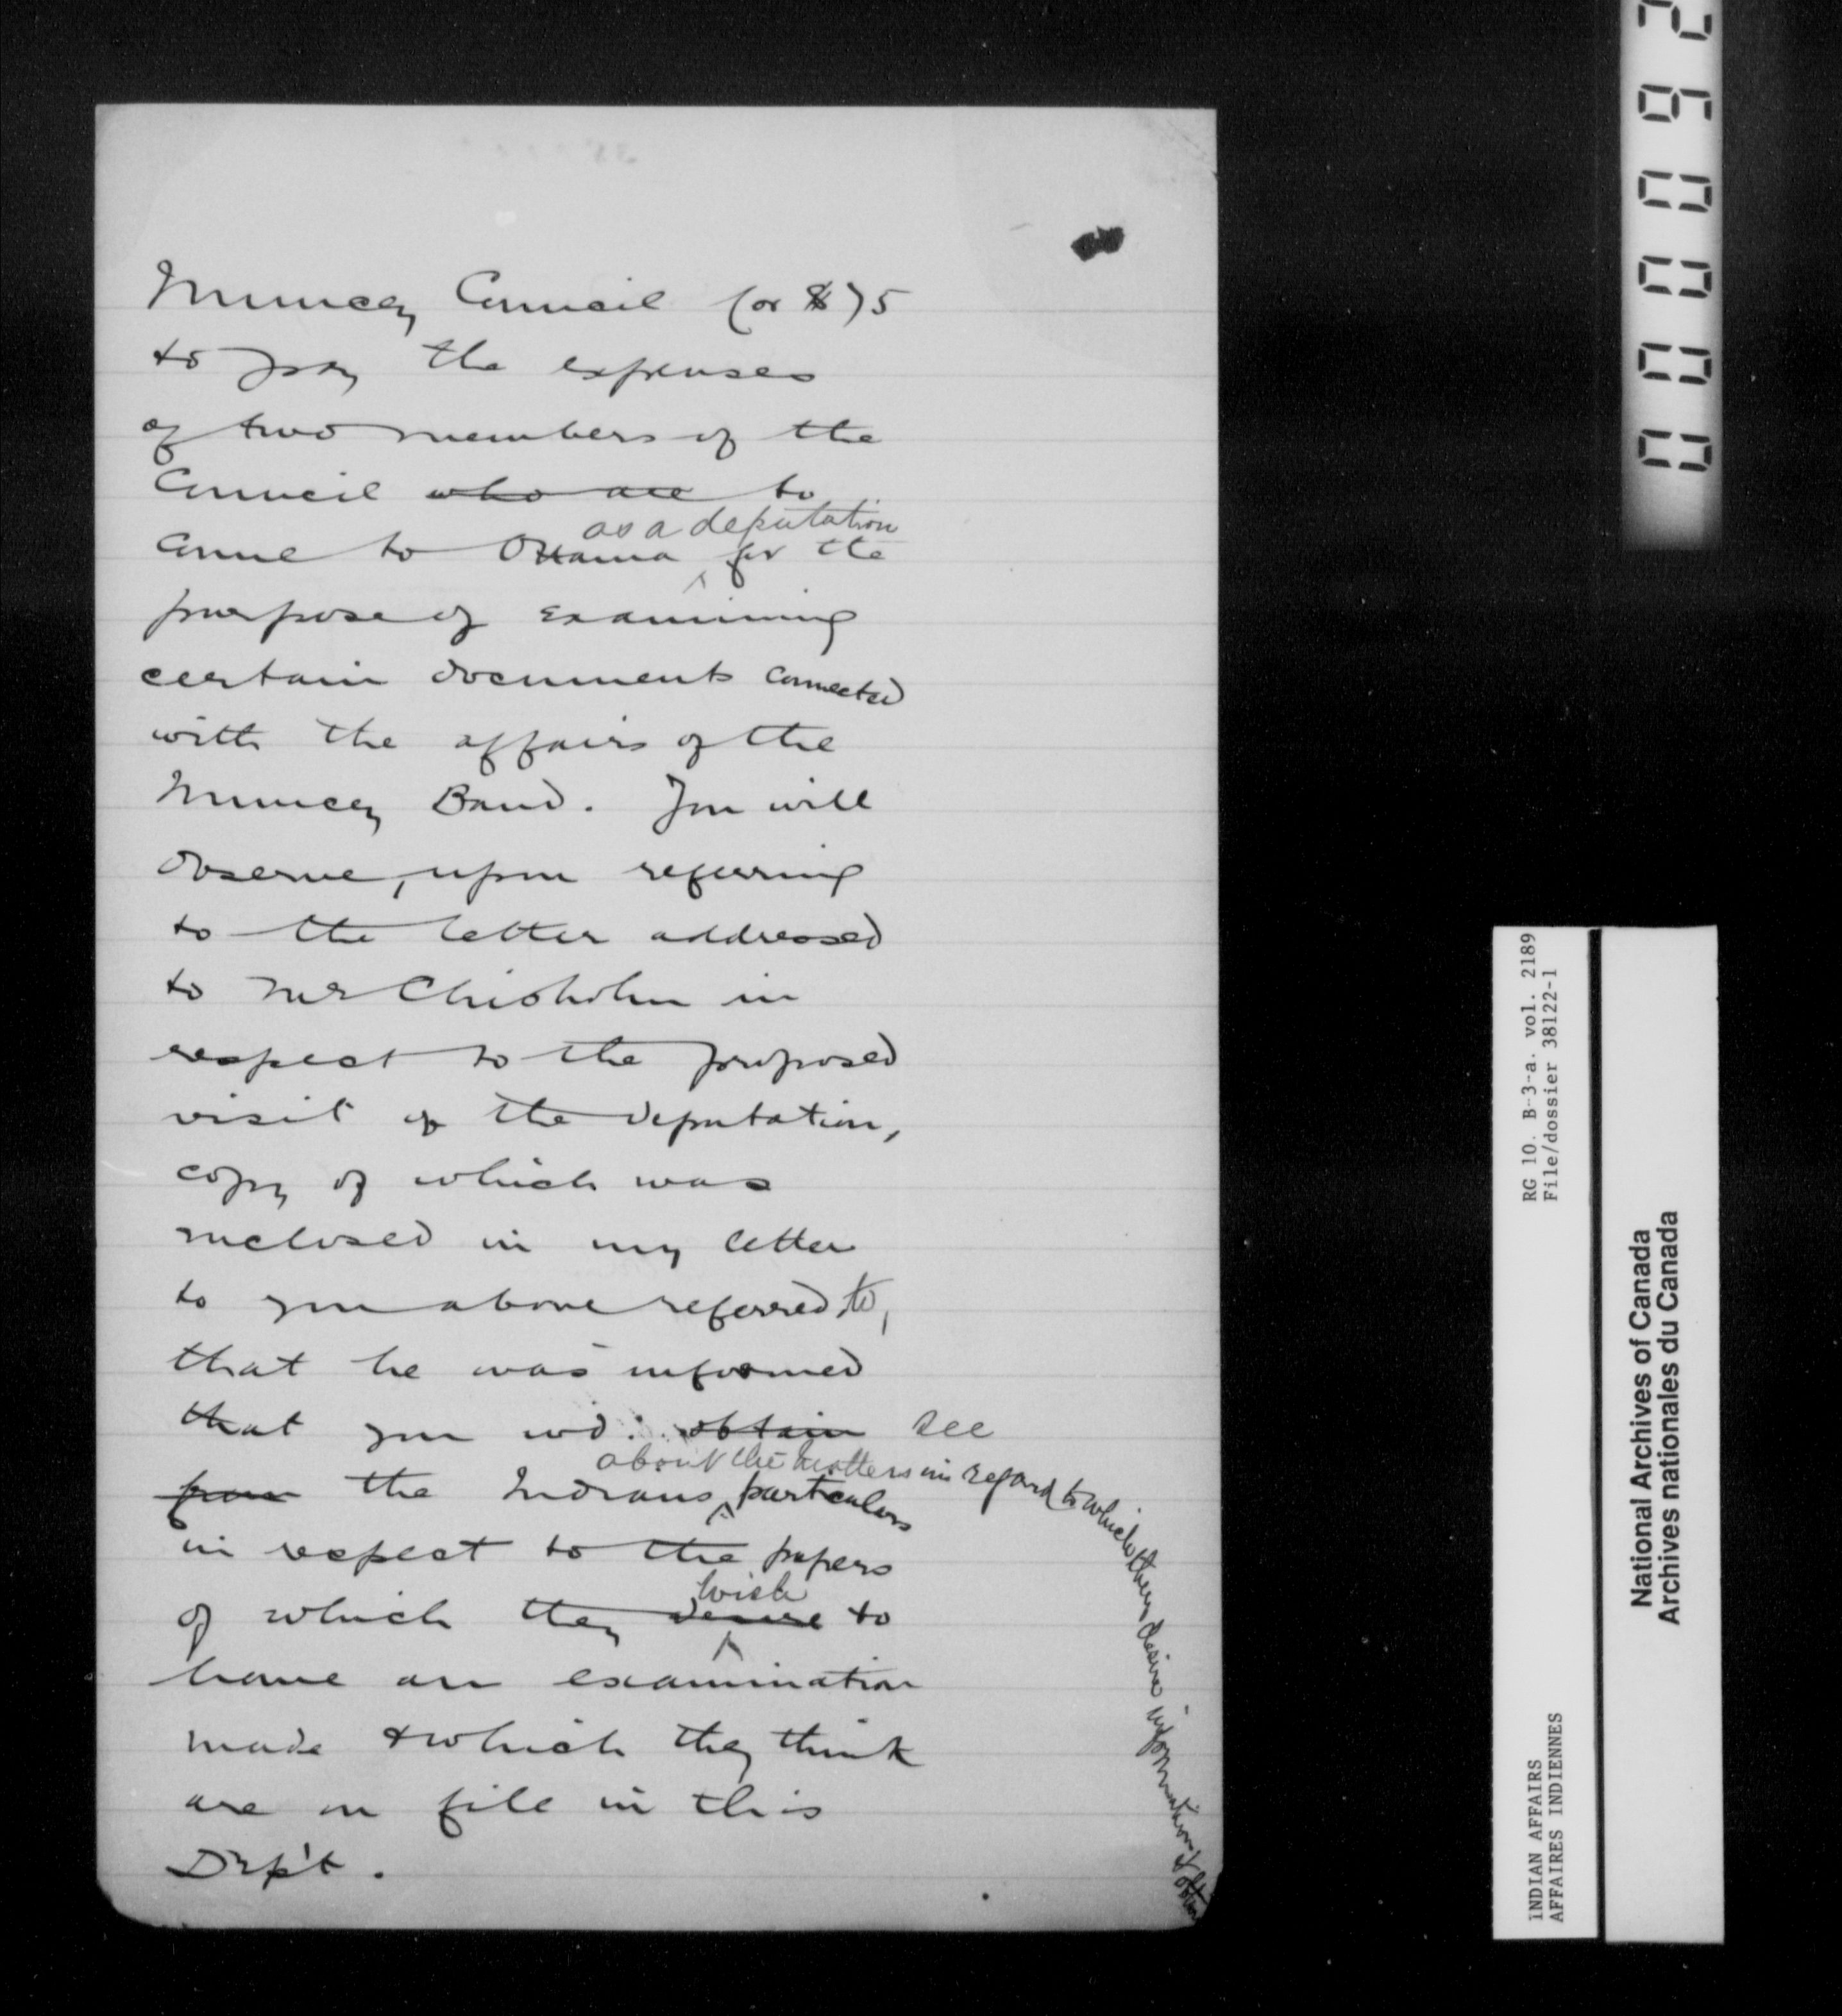 Muncey Council for $75
to pay the expenses
of two members of the
Council who are to
as a deputation
come to Ottawa for the
purpose of examining
certain documents connected
with the affairs of the
Muncey Band. You will
observe, upon referring
to the letter addressed
to Mr Chisholm in
respect to the proposed
visit of the deputation,
copy of which was
inclosed in my letter
to you above referred to,
that he was informed
that you wd. obtain see
about the matters in regard to which they desire information & obtain
from the Indians particulars
in respect to the papers
wish
of which they desire to
have an examination
made & which they think
are on file in this
Dep't.
200092
RG 10. B-3-a. vol. 2189
File/dossier 38122-1
INDIAN AFFAIRS
AFFAIRES INDIENNES
National Archives of Canada
Archives nationales du Canada